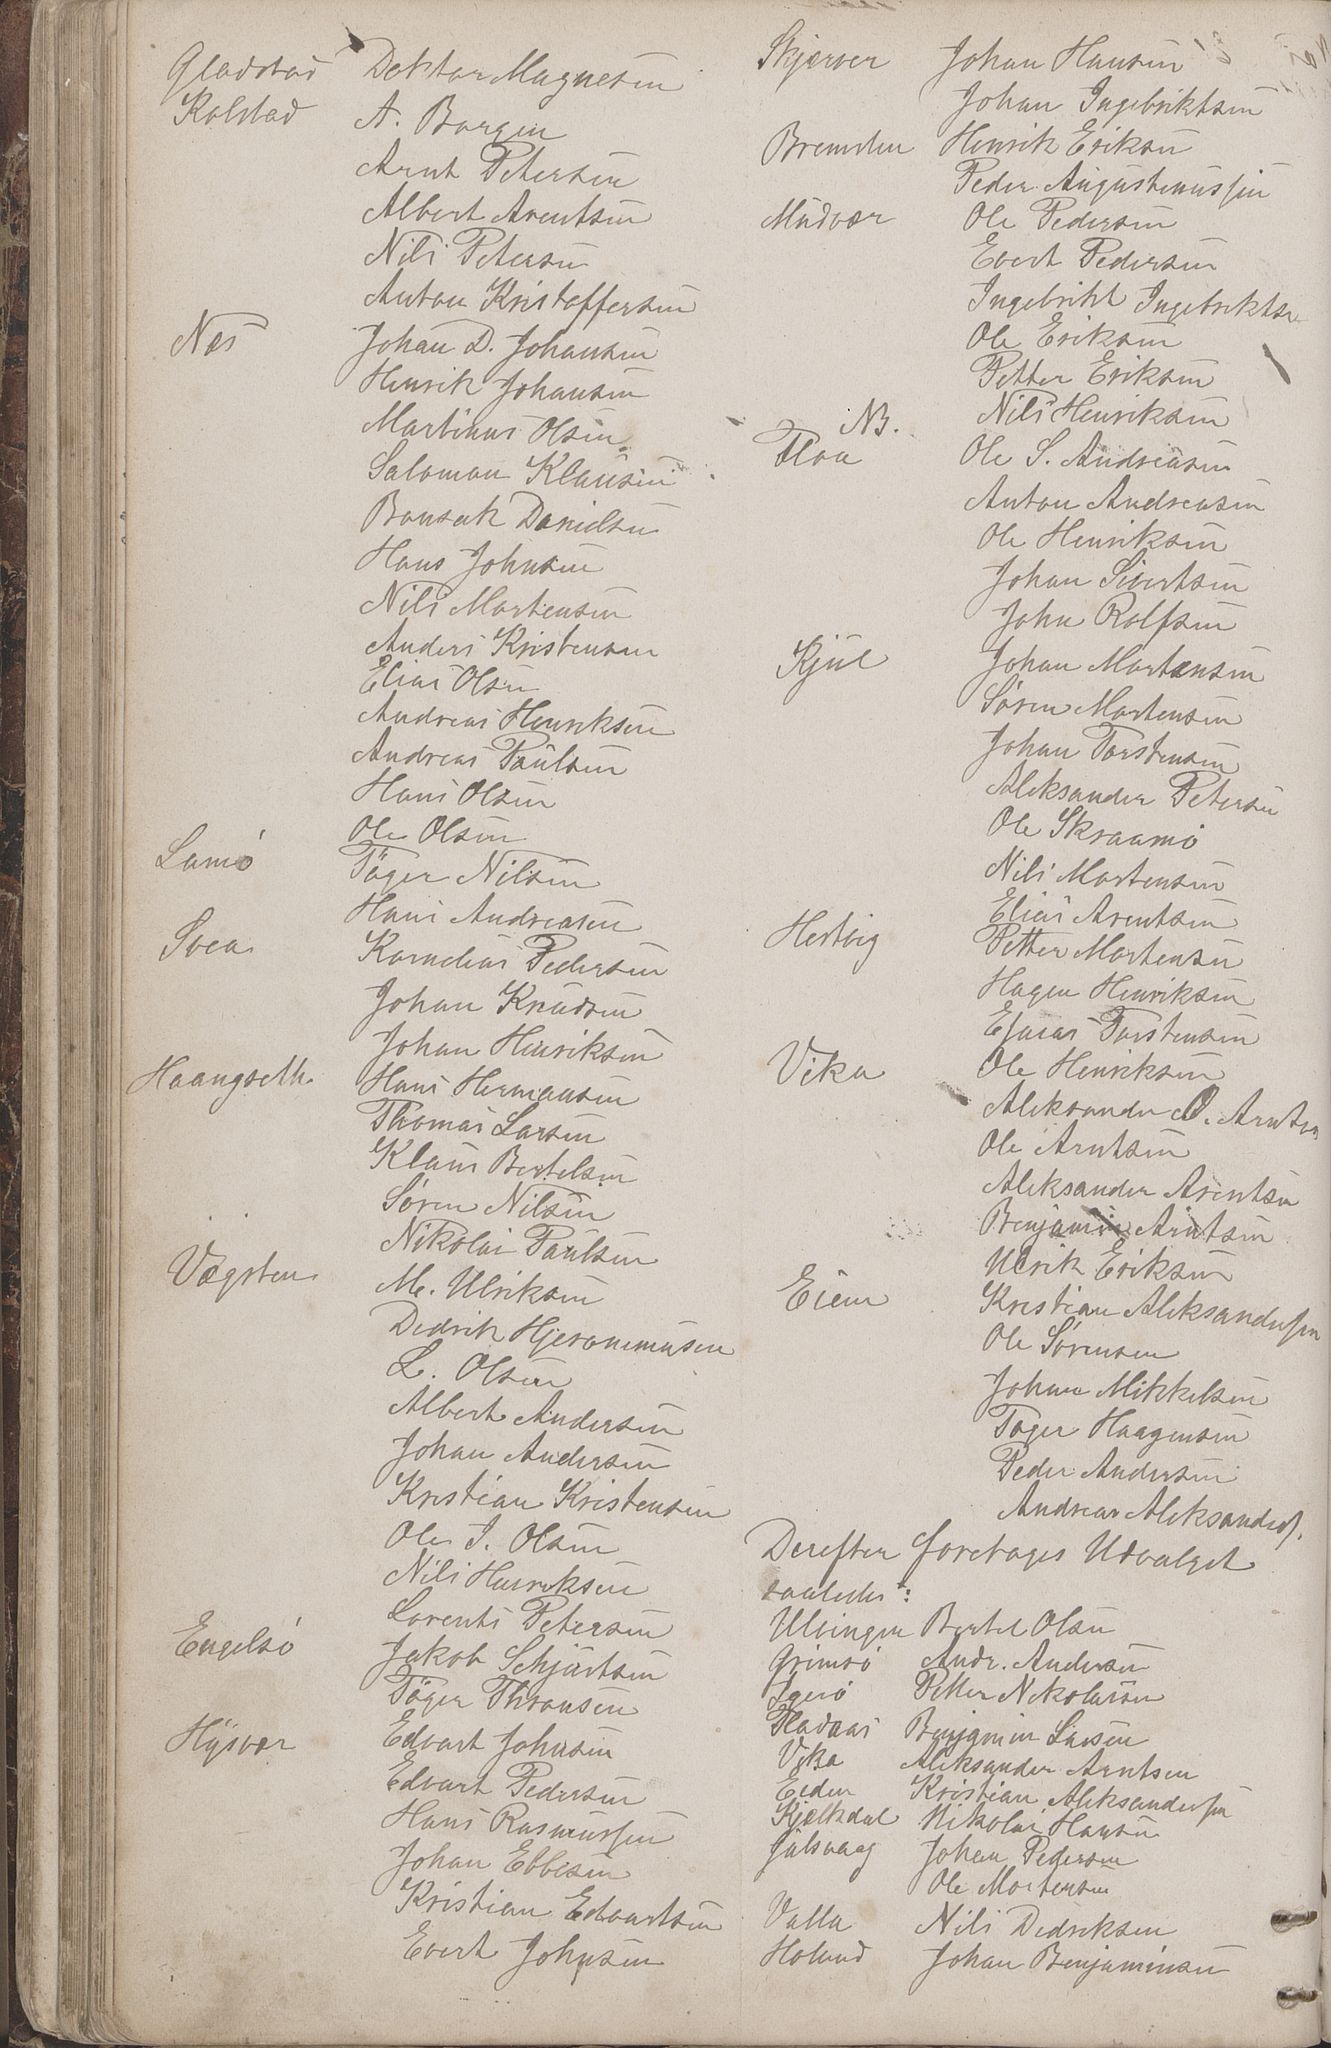 Gladstad Doktor Magnesen
Kolstad A. Borgen
Arnt Petersen
Albert Arentsen
Nils Petersen
Anton Kristoffersen
Næs Johan D. Johansen
Henrik Johansen
Martinus Olsen
Salomon Klausen
Bonsak Danielsen
Hans Johnsen
Nils Mortensen
Anders Kristensen
Elias Olsen
Andreas Henriksen
Andreas Paulsen
Hans Olsen
Ole Olsen
Lamö Töger Nilsen
Hans Andreasen
Svea Kornelius Pedersen
Johan Knudsen
Johan Henriksen
Haangseth Hans Hermansen
Thomas Larsen
Klaus Bertelsen
Sören Nilsen
Nikolai Paulsen
Vægsten M. Ulriksen
Didrik Hjeronimusen
L. Olsen
Albert Andersen
Johan Andersen
Kristian Kristensen
Ole J. Olsen
Nils Henriksen
Lorents Petersen
Engelsö Jakob Schjærtsen
Töger Thronsen
Hysvær Edvart Johnsen
Edvart Pedersen
Hans Rasmussen
Johan Ebbesen
Kristian Edvartsen
Evert Johnsen
Skjærvær Johan Hansen
Johan Ingebriktsen
Bremsten Henrik Eriksen
Peder Augustinussen
Mudvær Ole Pedersen
Evert Pedersen
Ingebrikt Ingebriktsen
Ole Eriksen
Petter Eriksen
NB. Nils Henriksen
Floa Ole S. Andreasen
Anton Andreasen
Ole Henriksen
Johan Sivertsen
John Rolfsen
Kjul Johan Mortensen
Sören Mortensen
Johan Torstensen
Aleksander Petersen
Ole Skraamö
Nils Mortensen
Elias Arentsen
Hestvig Petter Mortensen
Hagen Henriksen
Esaias Torstensen
Vika Ole Henriksen
Aleksander O. Arntsen
Ole Arntsen
Aleksander Arentsen
Benjamin Arntsen
Ulrik Eriksen
Eiem Kristian Aleksandersen
Ole Sörensen
Johan Mikkelsen
Töger Haagensen
Peder Andersen
Andreas Aleksanders.
Derefter foretages Udvalget
saaledes:
Ulvingen Bertel Olsen
Grimsö Andr. Andersen
Igerö Petter Nikolaisen
Fladaas Benjamin Larsen
Vika Aleksander Arntsen
Eidem Kristian Aleksandersen
Kjelkdal Nikolai Hansen
Julsvaag Johan Pedersen
Ole Mortensen
Valla Nils Didriksen
Holand Johan Benjaminsen